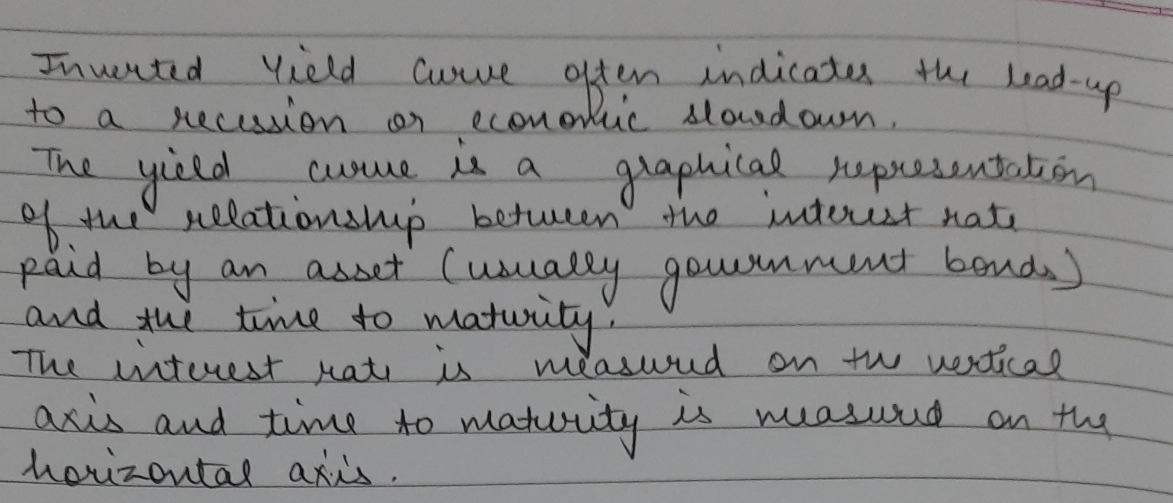 Inverted Yield Curve often indicates the lead-up
to a recession or economic slowdown.
The yield curve is a graphical representation
of the relationship between the interest rate
paid by an asset (usually government bonds)
and the time to maturity.
The interest rate is measured on the vertical
axis and time to maturity is measured on the
horizontal axis.